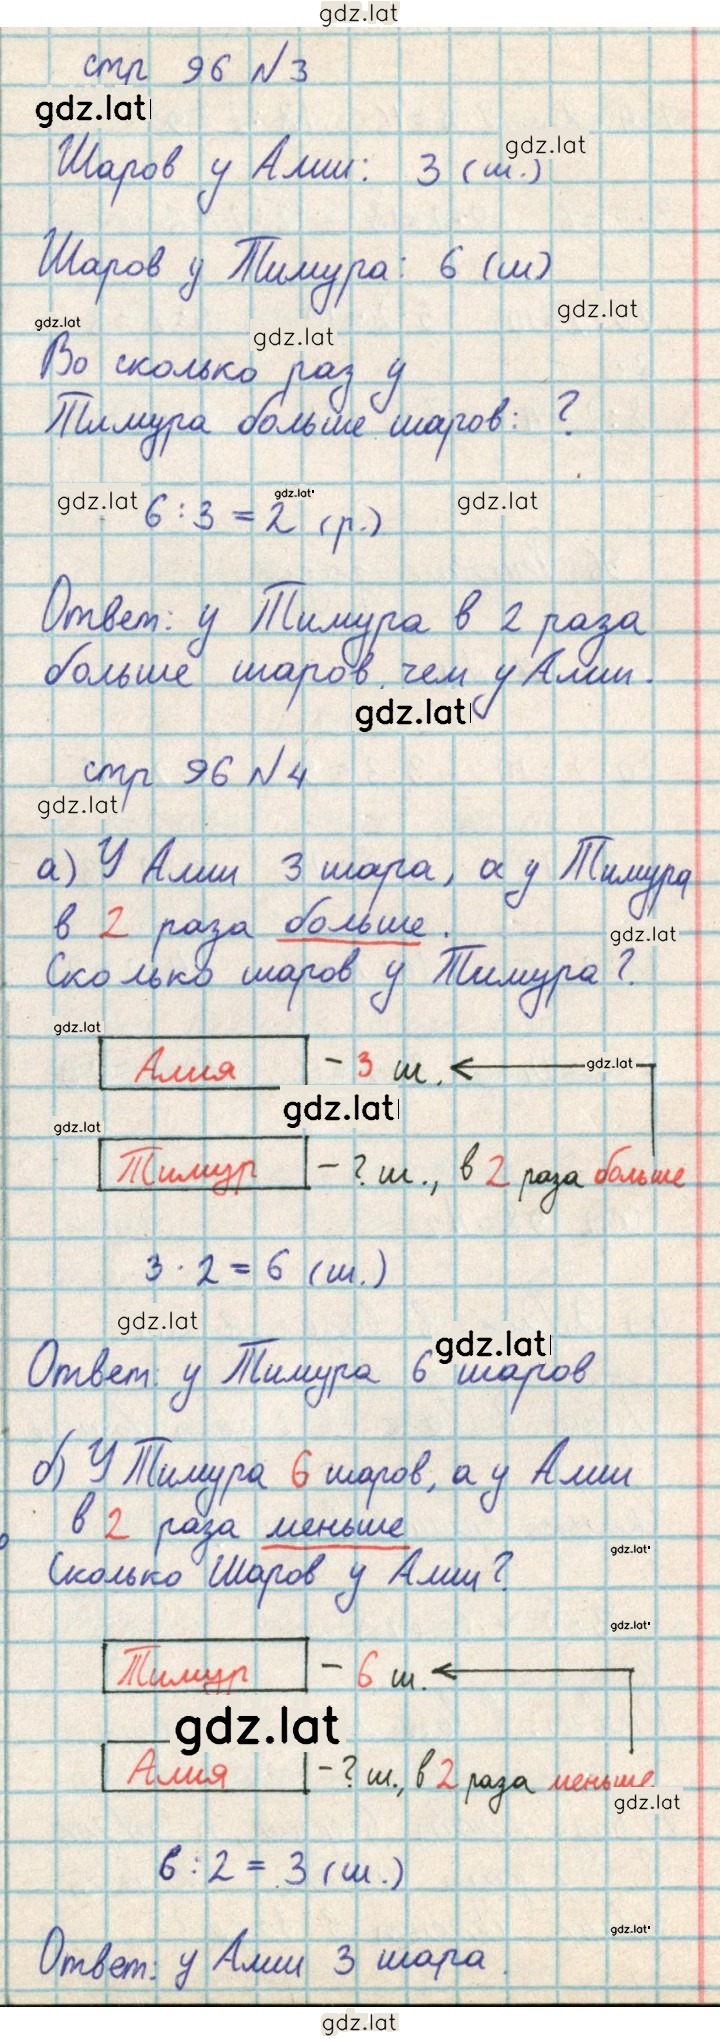 gdz.lat
стр 96 №3
gdz.lat
Шаров у Алии: 3 (ш.)
gdz.lat
Шаров у Тимура: 6 (ш)
gdz.lat
gdz.lat
gdz.lat
Во сколько раз у
Тимура больше шаров: ?
gdz.lat
gdz.lat
gdz.lat
6 : 3 = 2 (р.)
Ответ: у Тимура в 2 раза
больше шаров, чем у Алии.
gdz.lat
стр 96 №4
gdz.lat
а) У Алии 3 шара, а у Тимура
в 2 раза больше.
gdz.lat
Сколько шаров у Тимура?
gdz.lat
Алия - 3 ш.
gdz.lat
gdz.lat
gdz.lat
Тимур - ? ш., в 2 раза больше
3 · 2 = 6 (ш.)
gdz.lat
gdz.lat
Ответ: у Тимура 6 шаров
б) У Тимура 6 шаров, а у Алии
в 2 раза меньше
gdz.lat
Сколько Шаров у Алии?
gdz.lat
Тимур - 6 ш.
gdz.lat
Алия - ? ш., в 2 раза меньше
gdz.lat
6 : 2 = 3 (ш.)
gdz.lat
Ответ: у Алии 3 шара.
gdz.lat